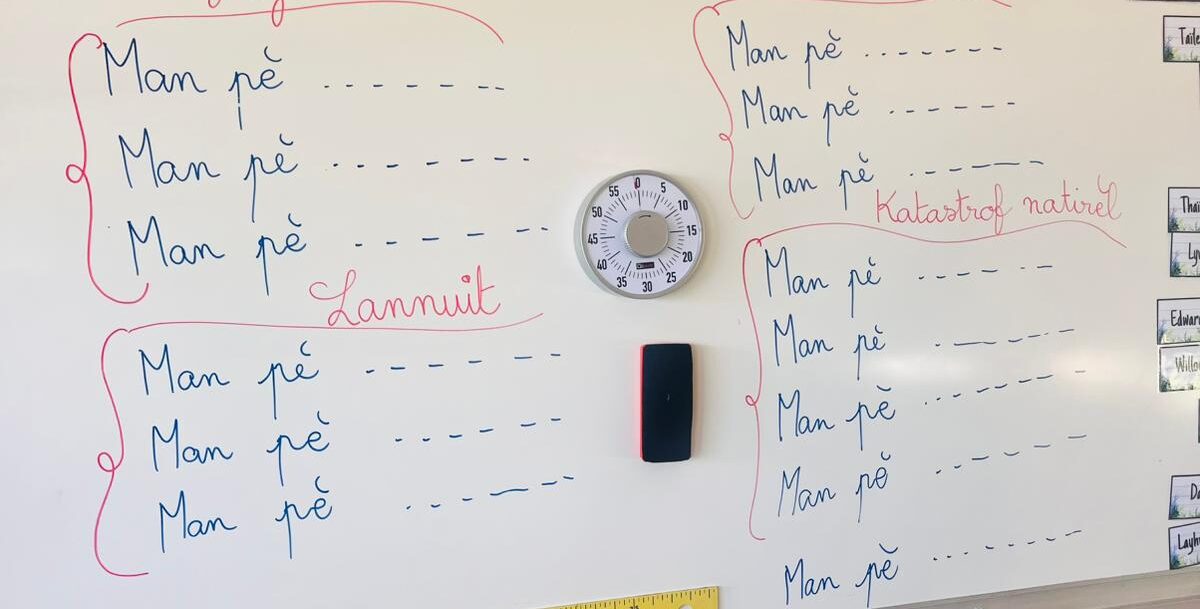 Man pè -------
Man pè -------
Man pè ------
Lannuit
Man pè ------
Man pè ------
Man pè ------
Man pè -------
Man pè ------
Man pè ------
Katastrof natirèl
Man pè ------
Man pè ------
Man pè -------
Man pè ------
Man pè -------
0
5
10
15
20
25
30
35
40
45
50
55
Edwar